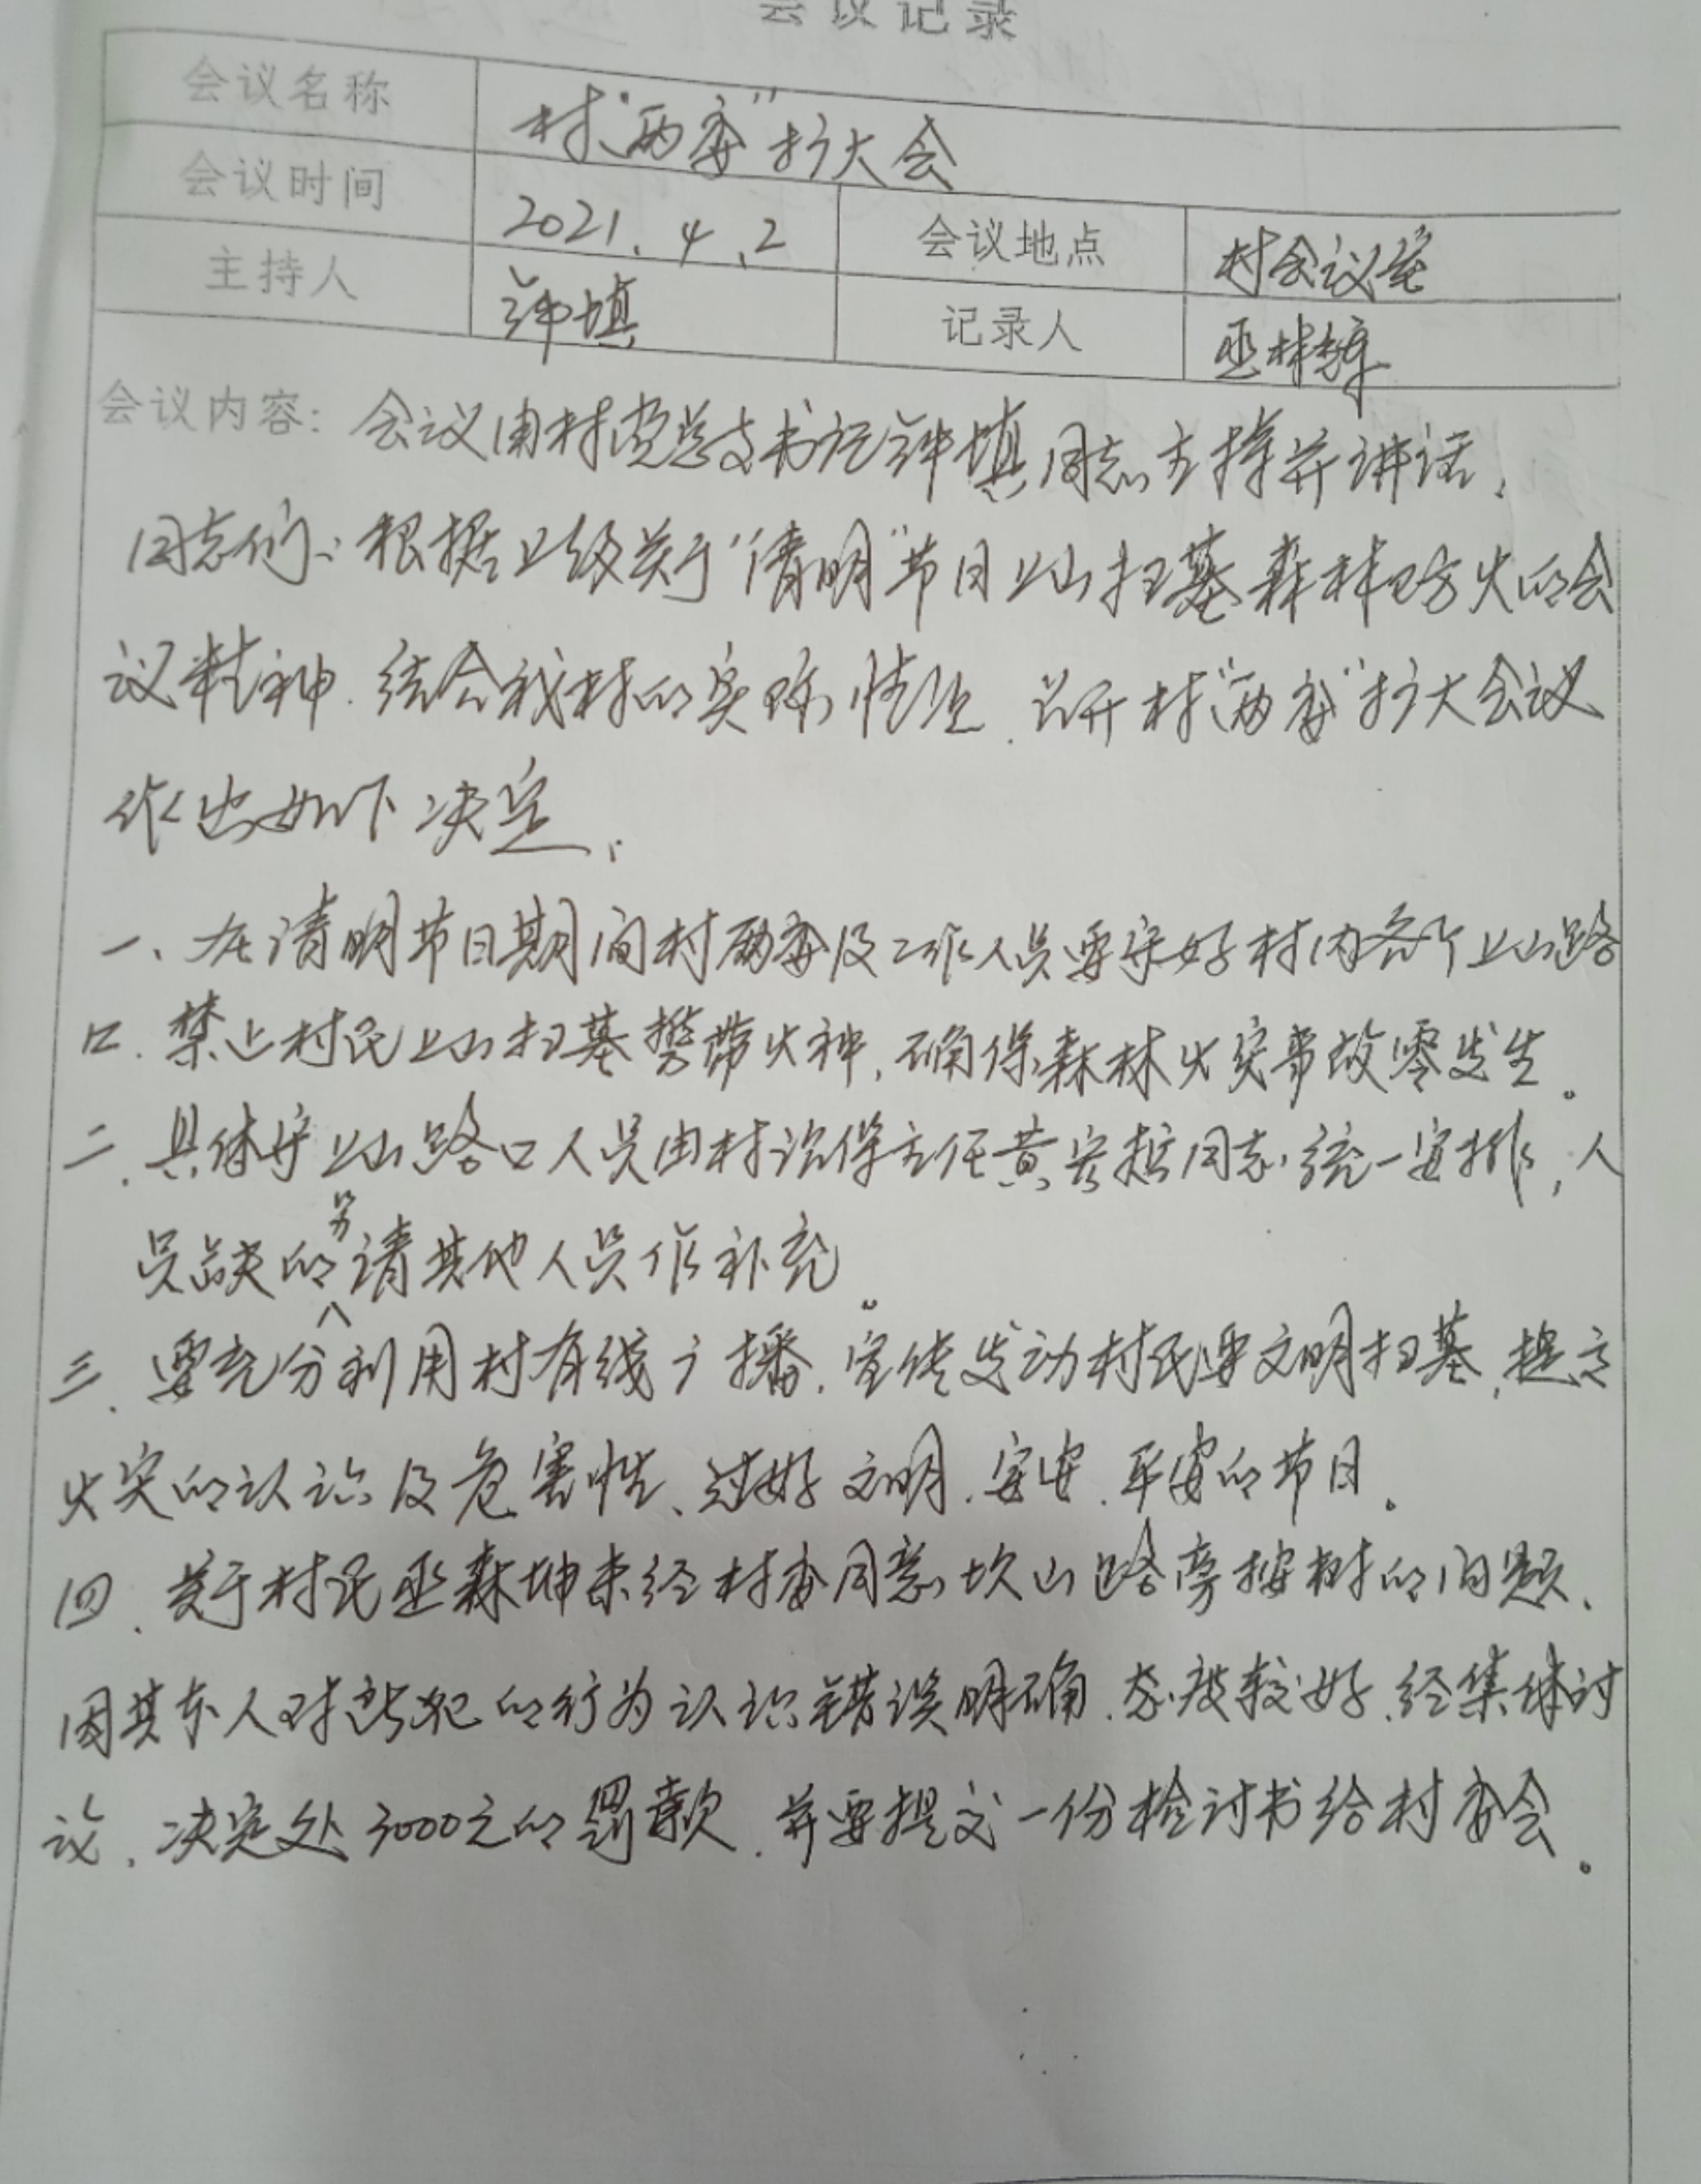 会议记录
会议名称 村"两委"扩大会
会议时间 2021.4.2 会议地点 村会议室
主持人 记录人
会议内容: 会议由村党总支书记 同志主持并讲话,
同志们: 根据上级关于"清明"节日上山扫墓森林防火的会
议精神.结合我村的实际情况.召开村"两委"扩大会议
作出如下决定:
一、在清明节日期间村两委及工作人员要守好村内各个上山路
口.禁止村民上山扫墓携带火种,确保森林火灾事故零发生。
二.具体守上山路口人员由村治保主任黄 同志统一安排,人
员缺的另请其他人员作补充。
三.要充分利用村有线广播.宣传发动村民要文明扫墓,提高
火灾的认识及危害性、过好文明.安安.平安的节日。
四.关于村民巫森坤未经村委同意坎山路旁桉树的问题.
因其本人对所犯的行为认识错误明确.态度较好.经集体讨
议.决定处3000元的罚款.并要提交一份检讨书给村委会。